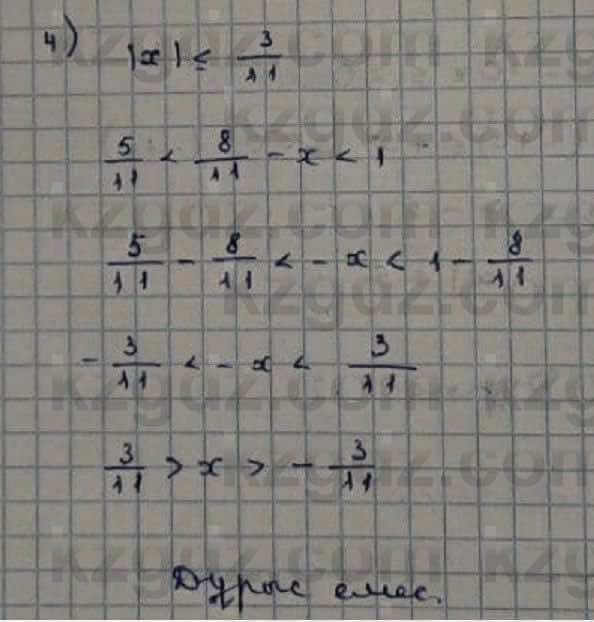 4) |x| ≤ 3/11
5/11 < 8/11 - x < 1
5/11 - 8/11 < - x < 1 - 8/11
- 3/11 < - x < 3/11
3/11 > x > - 3/11
Дұрыс емес.
kzgdz.com